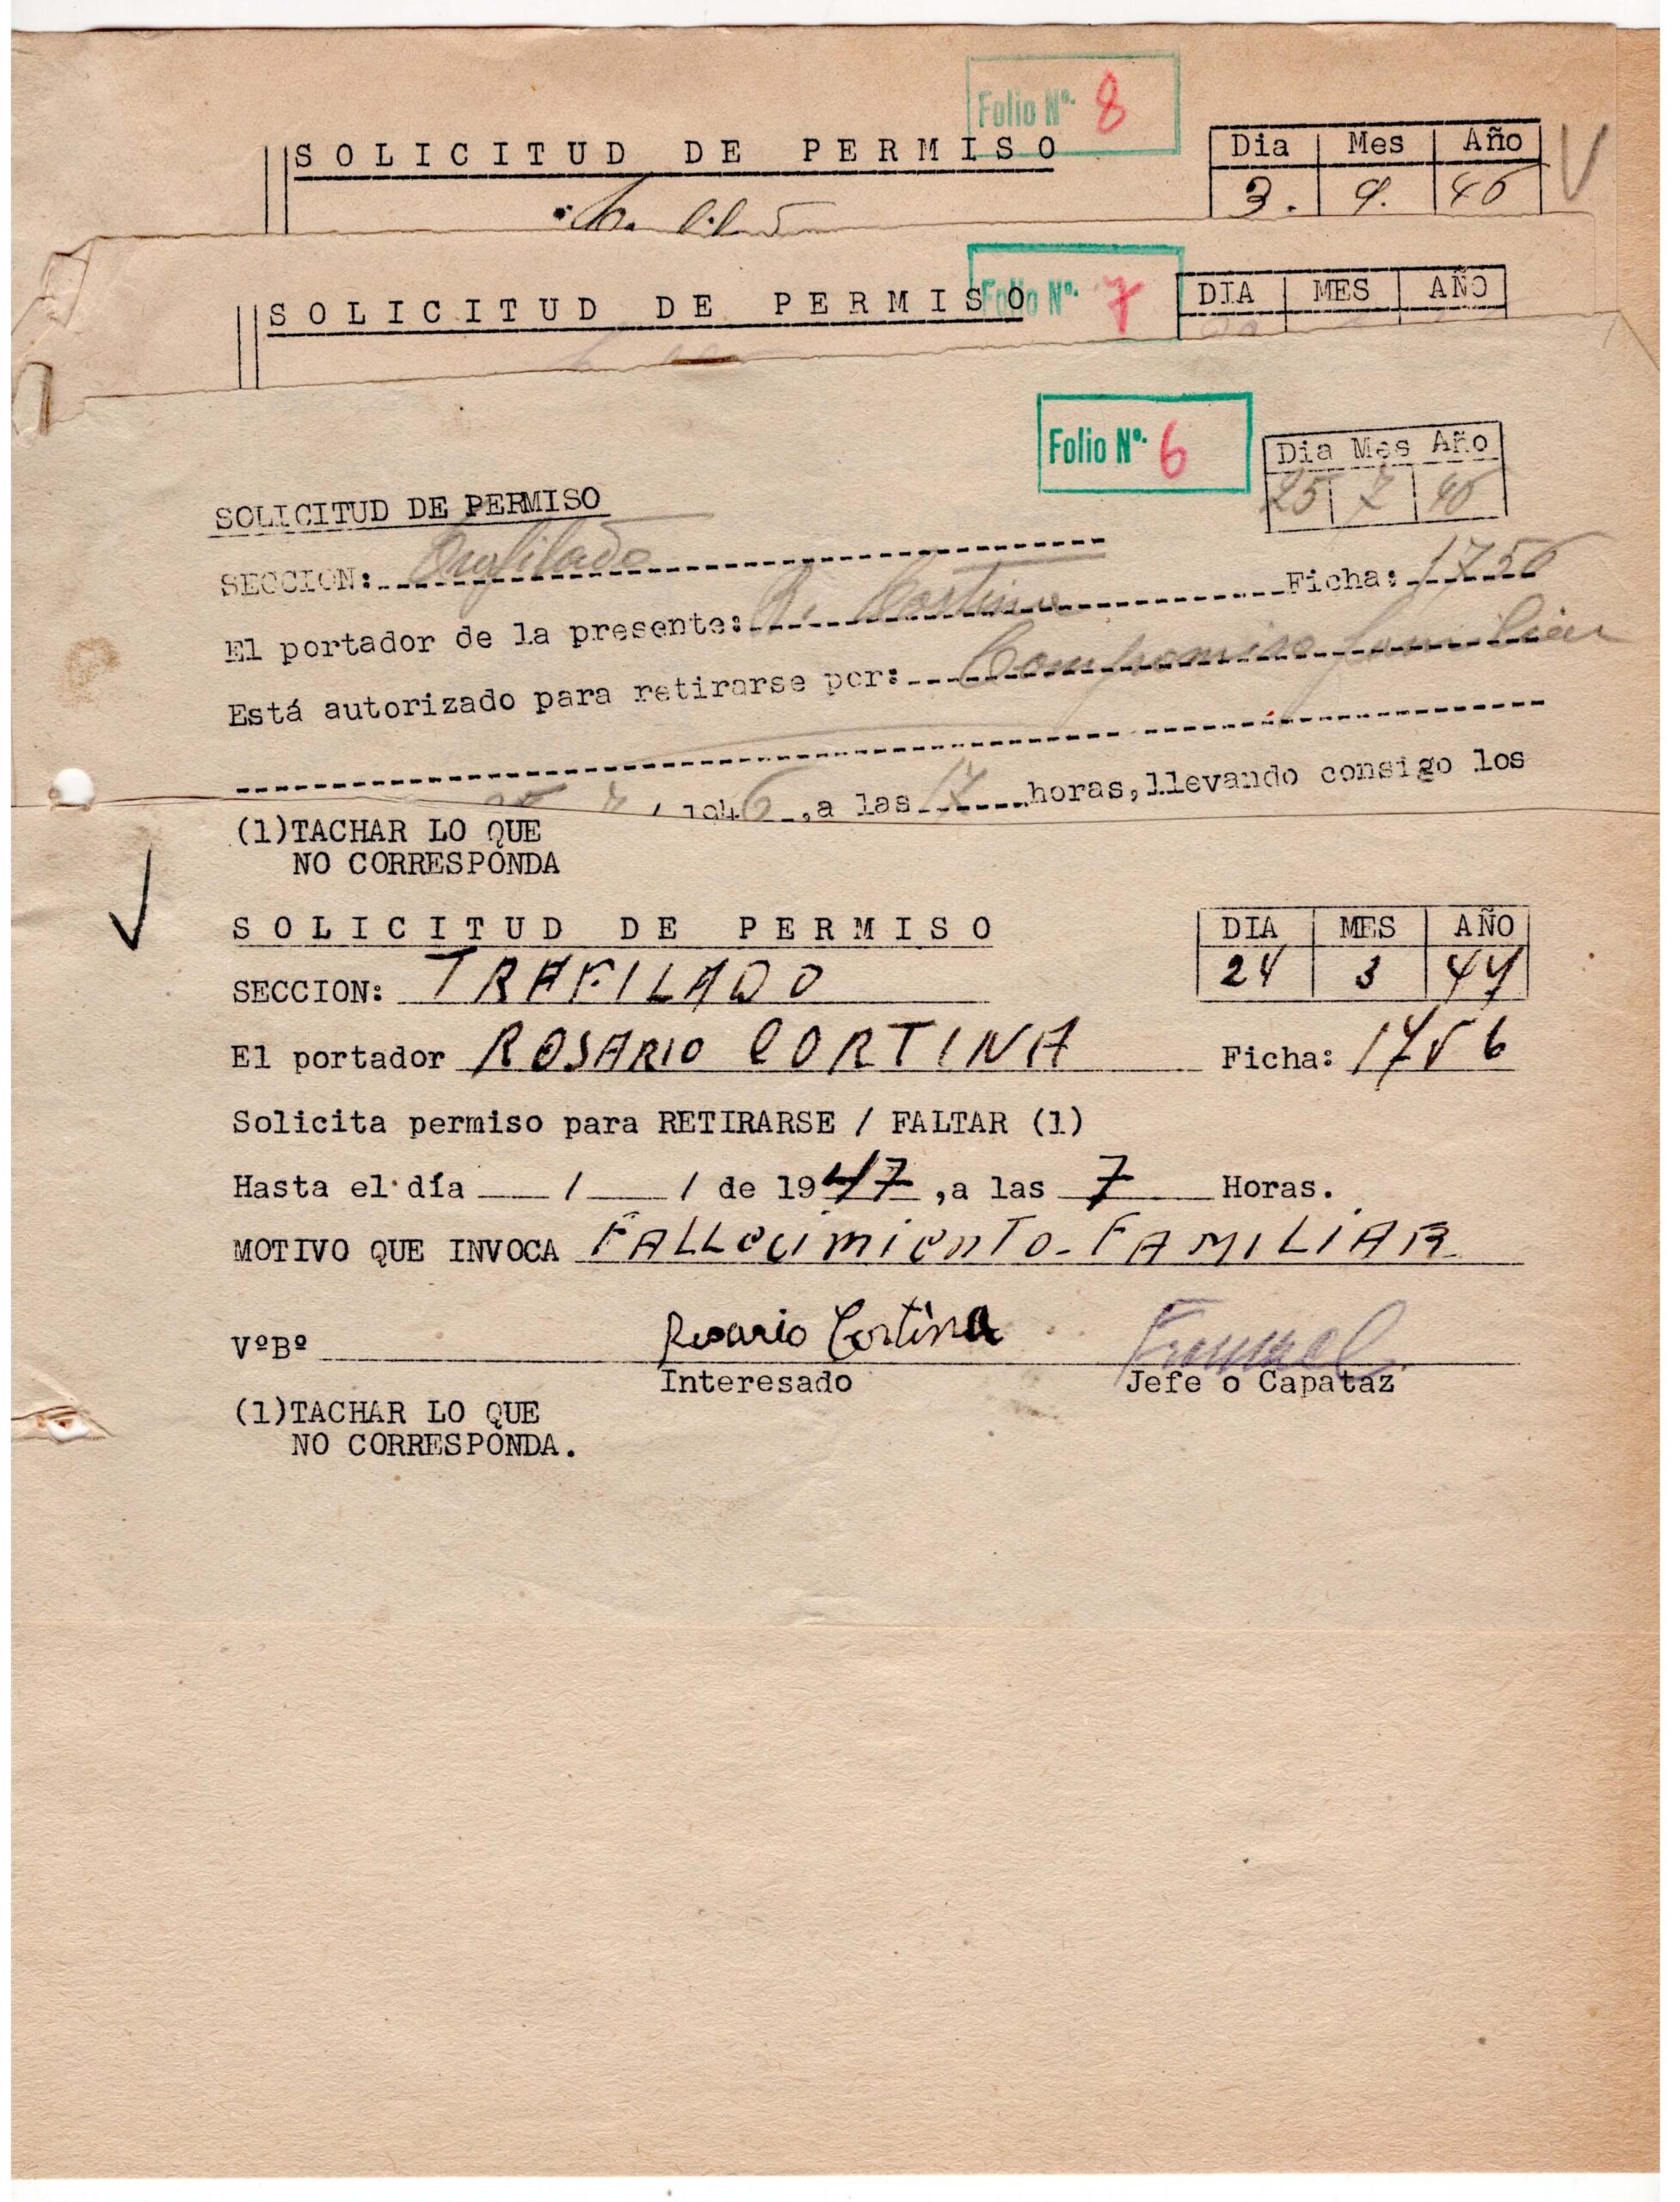 Folio Nº. 8
SOLICITUD DE PERMISO
Dia Mes Año
3. 9. 46
Folio Nº. 7
SOLICITUD DE PERMISO
DIA MES AÑO
Folio Nº. 6
Dia Mes Año
25 7 46
SOLICITUD DE PERMISO
SECCION:
El portador de la presente: R. Cortina Ficha: 1756
Está autorizado para retirarse por: Compromiso familiar
1946, a las 17 horas, llevando consigo los
(1) TACHAR LO QUE
NO CORRESPONDA
SOLICITUD DE PERMISO
DIA MES AÑO
24 3 47
SECCION: TRAFILADO
El portador ROSARIO CORTINA Ficha: 1756
Solicita permiso para RETIRARSE / FALTAR (1)
Hasta el día / / de 1947, a las 7 Horas.
MOTIVO QUE INVOCA FALLecimiento-FAMILIAR
VºBº Rosario Cortina
Interesado Jefe o Capataz
(1) TACHAR LO QUE
NO CORRESPONDA.